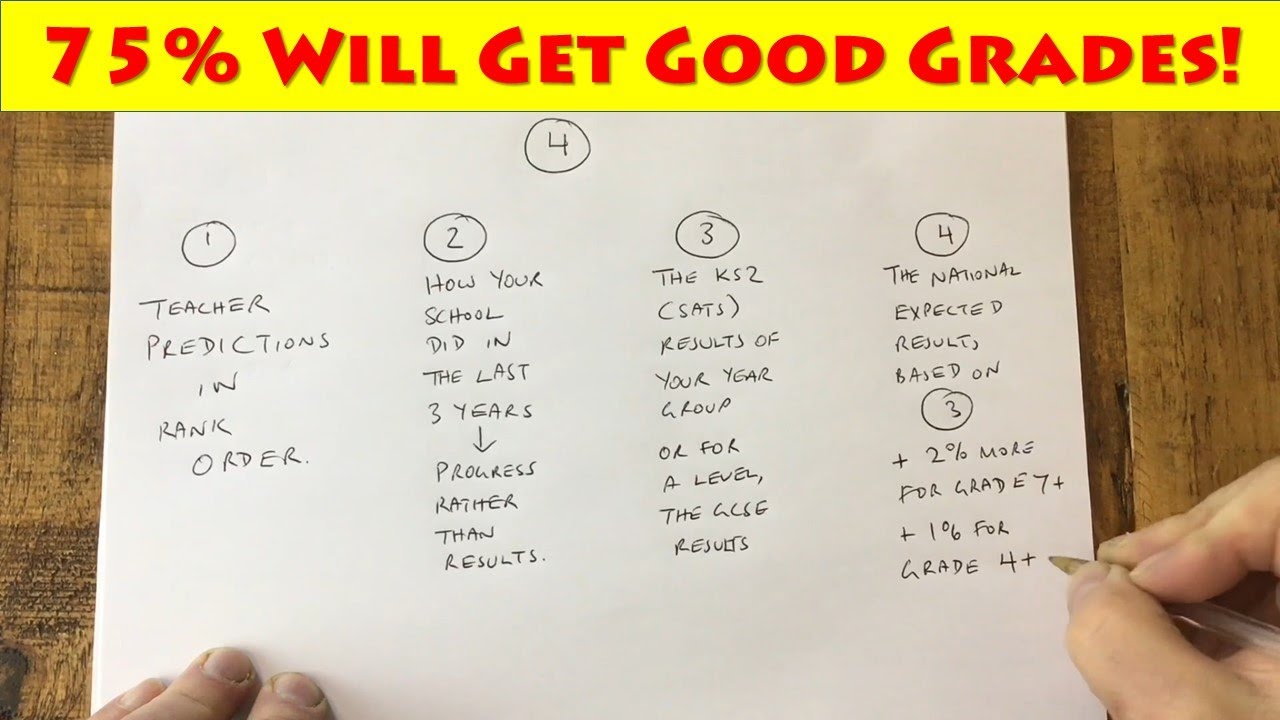 75% WILL GET GOOD GRADES!
4
1
TEACHER
PREDICTIONS
IN
RANK
ORDER.
2
HOW YOUR
SCHOOL
DID IN
THE LAST
3 YEARS
↓
PROGRESS
RATHER
THAN
RESULTS.
3
THE KS2
(SATS)
RESULTS OF
YOUR YEAR
GROUP
OR FOR
A LEVEL,
THE GCSE
RESULTS
4
THE NATIONAL
EXPECTED
RESULT,
BASED ON
3
+ 2% MORE
FOR GRADE 7+
+ 1% FOR
GRADE 4+